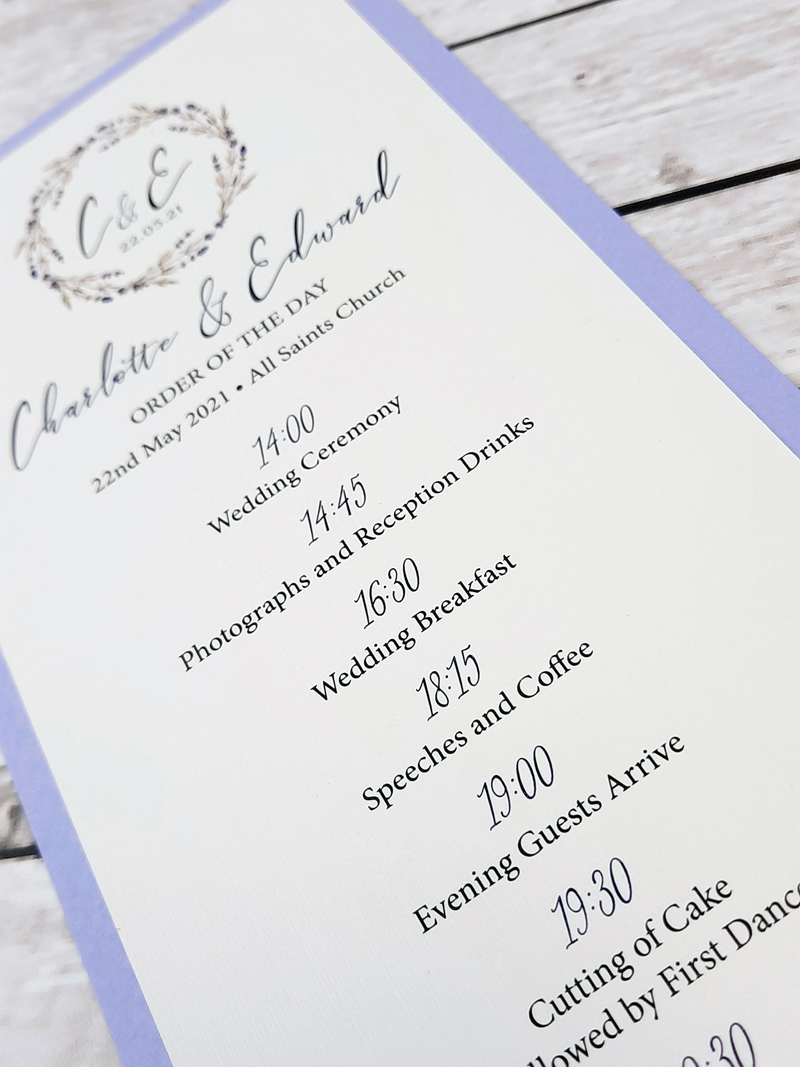 C & E
22.05.21
Charlotte & Edward
ORDER OF THE DAY
22nd May 2021 • All Saints Church
14:00
Wedding Ceremony
14:45
Photographs and Reception Drinks
16:30
Wedding Breakfast
18:15
Speeches and Coffee
19:00
Evening Guests Arrive
19:30
Cutting of Cake
llowed by First Dance
:30